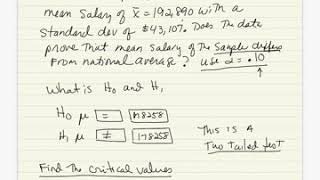 mean salary of x̄ = 192,890 with a
standard dev of $43,107. Does the data
prove that mean salary of the sample differs
from national average? use α = .10
What is Ho and H1
Ho μ = 178258
H1 μ ≠ 178258
This is a
Two tailed test
Find the critical values